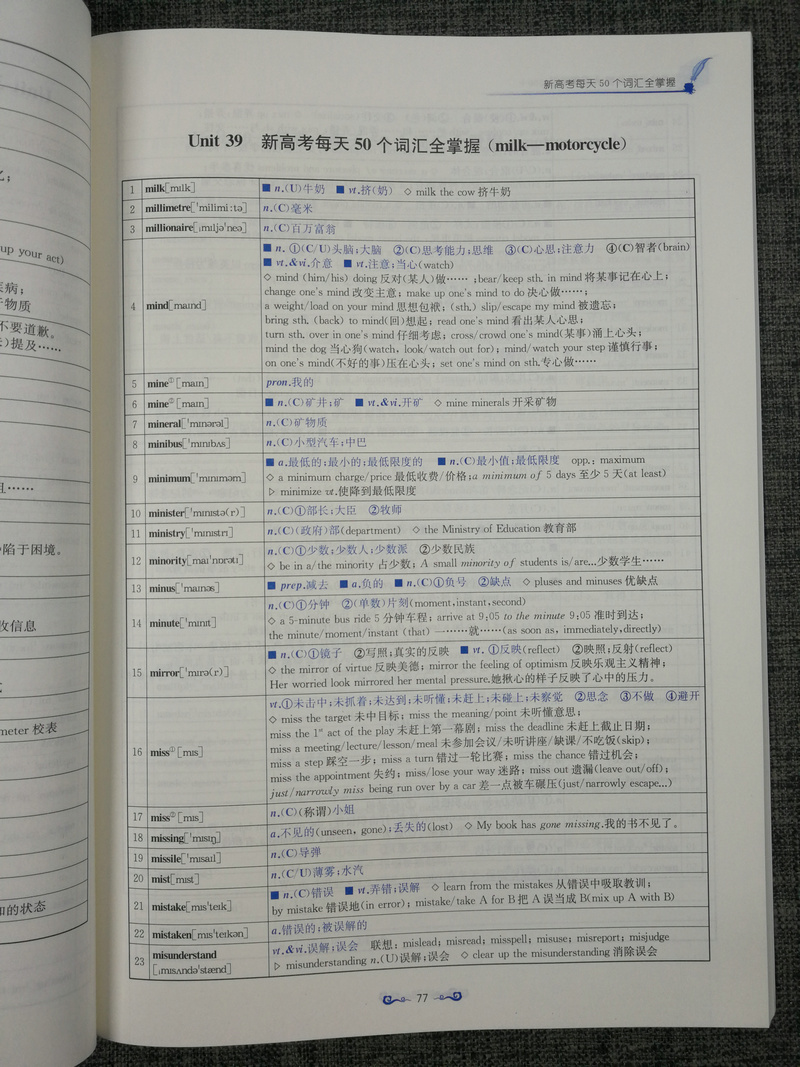 up your act)
疾病;
不要道歉。
)提及……
陷于困境。
收信息
meter 校表
的状态
新高考每天 50 个词汇全掌握
Unit 39 新高考每天 50 个词汇全掌握(milk—motorcycle)
1 milk[mɪlk] ■ n.(U)牛奶 ■ vt.挤(奶) ◇ milk the cow 挤牛奶
2 millimetre[ˈmilimi:tə] n.(C)毫米
3 millionaire[ˌmɪljəˈneə] n.(C)百万富翁
4 mind[maɪnd] ■ n. ①(C/U)头脑;大脑 ②(C)思考能力;思维 ③(C)心思;注意力 ④(C)智者(brain)
■ vt.&vi.介意 ■ vt.注意;当心(watch)
◇ mind (him/his) doing 反对(某人)做……;bear/keep sth. in mind 将某事记在心上;
change one's mind 改变主意; make up one's mind to do 决心做……;
a weight/load on your mind 思想包袱; (sth.) slip/escape my mind 被遗忘;
bring sth. (back) to mind(回)想起; read one's mind 看出某人心思;
turn sth. over in one's mind 仔细考虑; cross/crowd one's mind(某事)涌上心头;
mind the dog 当心狗(watch, look/watch out for); mind/watch your step 谨慎行事;
on one's mind(不好的事)压在心头; set one's mind on sth.专心做……
5 mine①[maɪn] pron.我的
6 mine②[maɪn] ■ n.(C)矿井;矿 ■ vt.&vi.开矿 ◇ mine minerals 开采矿物
7 mineral[ˈmɪnərəl] n.(C)矿物质
8 minibus[ˈmɪnɪbʌs] n.(C)小型汽车;中巴
9 minimum[ˈmɪnɪməm] ■ a.最低的;最小的;最低限度的 ■ n.(C)最小值;最低限度 opp.: maximum
◇ a minimum charge/price 最低收费/价格;a minimum of 5 days 至少 5 天(at least)
▷ minimize vt.使降到最低限度
10 minister[ˈmɪnɪstə(r)] n.(C)①部长;大臣 ②牧师
11 ministry[ˈmɪnɪstri] n.(C)(政府)部(department) ◇ the Ministry of Education 教育部
12 minority[maɪˈnɒrəti] n.(C)①少数;少数人;少数派 ②少数民族
◇ be in a/the minority 占少数; A small minority of students is/are…少数学生……
13 minus[ˈmaɪnəs] ■ prep.减去 ■ a.负的 ■ n.(C)①负号 ②缺点 ◇ pluses and minuses 优缺点
14 minute[ˈmɪnɪt] n.(C)①分钟 ②(单数)片刻(moment,instant,second)
◇ a 5-minute bus ride 5 分钟车程; arrive at 9:05 to the minute 9:05 准时到达;
the minute/moment/instant (that) 一……就……(as soon as, immediately,directly)
15 mirror[ˈmɪrə(r)] ■ n.(C)①镜子 ②写照;真实的反映 ■ vt. ①反映(reflect) ②映照;反射(reflect)
◇ the mirror of virtue 反映美德; mirror the feeling of optimism 反映乐观主义精神;
Her worried look mirrored her mental pressure.她揪心的样子反映了心中的压力。
16 miss①[mɪs] vt.①未击中;未抓着;未达到;未听懂;未赶上;未碰上;未察觉 ②思念 ③不做 ④避开
◇ miss the target 未中目标; miss the meaning/point 未听懂意思;
miss the 1st act of the play 未赶上第一幕剧; miss the deadline 未赶上截止日期;
miss a meeting/lecture/lesson/meal 未参加会议/未听讲座/缺课/不吃饭(skip);
miss a step 踩空一步; miss a turn 错过一轮比赛; miss the chance 错过机会;
miss the appointment 失约; miss/lose your way 迷路; miss out 遗漏(leave out/off);
just/narrowly miss being run over by a car 差一点被车碾压(just/narrowly escape…)
17 miss②[mɪs] n.(C)(称谓)小姐
18 missing[ˈmɪsɪŋ] a.不见的(unseen, gone);丢失的(lost) ◇ My book has gone missing.我的书不见了。
19 missile[ˈmɪsaɪl] n.(C)导弹
20 mist[mɪst] n.(C/U)薄雾;水汽
21 mistake[mɪsˈteɪk] ■ n.(C)错误 ■ vt.弄错;误解 ◇ learn from the mistakes 从错误中吸取教训;
by mistake 错误地(in error); mistake/take A for B 把 A 误当成 B(mix up A with B)
22 mistaken[mɪsˈteɪkən] a.错误的;被误解的
23 misunderstand [ˌmɪsʌndəˈstænd] vt.&vi.误解;误会 联想: mislead; misread; misspell; misuse; misreport; misjudge
▷ misunderstanding n.(U)误解;误会 ◇ clear up the misunderstanding 消除误会
77